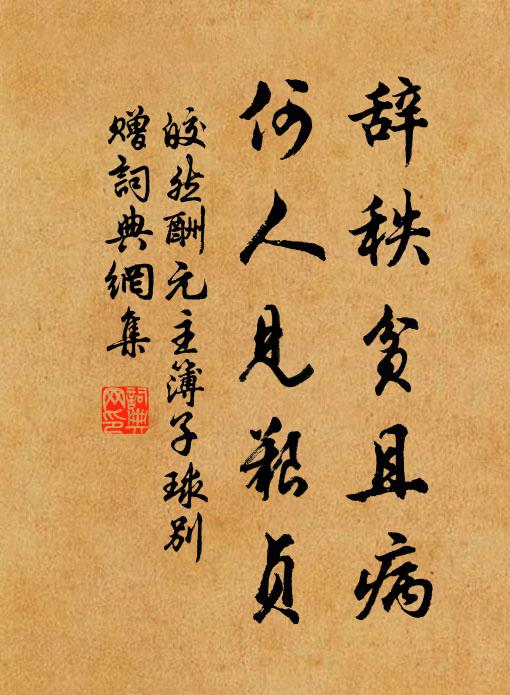 辞秩贫且病
何人见艰贞
皎然酬元主簿子球别
赠詞典網集
詞典
网印